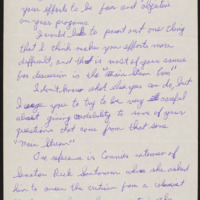 your efforts to be fair and objective
on your programs
I would like to point out one thing
that I think makes your efforts more
difficult, and that is most of your source
for discussion is the "Main Stream Press"
I don't know what else you can do, but
I urge you to try to be very careful
about giving credability to some of your
questions that come from that some
"Main Stream".
One reference is Connie's interview of
Senator Rick Santorum when she asked
him to answer the critism from a